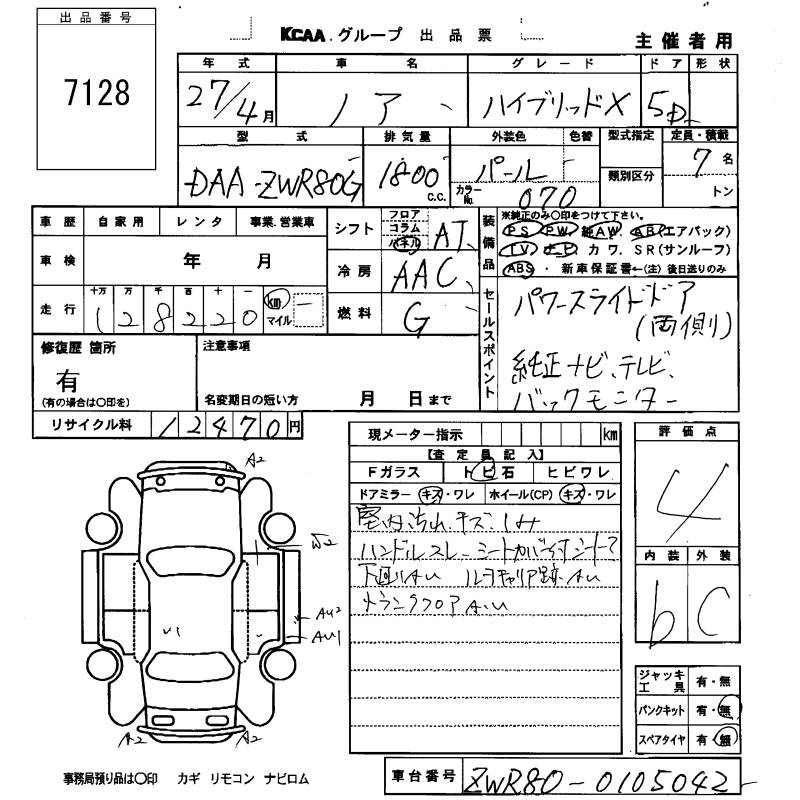 出品番号
7128
KCAA.グループ 出品票
主催者用
年式 車名 グレード ドア 形状
27/4月 ノア ハイブリッドX 5D
型式 排気量 外装色 色替 型式指定 定員・積載
DAA-ZWR80G 1800 C.C. パール 類別区分 7名
カラーNo. 070 トン
車歴 自家用 レンタ 事業.営業車
車検 年 月
走行 十万 万 千 百 十 一
128220 km マイル
シフト フロア コラム パネル AT
冷房 AAC
燃料 G
装備品
※純正のみ〇印をつけて下さい。
PS PW 純AW AB(エアバック)
TV ナビ カワ. SR(サンルーフ)
ABS ・ 新車保証書←(注)後日送りのみ
セールスポイント
パワースライドドア
(両側)
純正ナビ、テレビ、
バックモニター
修復歴 箇所
有
(有の場合は〇印を)
注意事項
名変期日の短い方 月 日まで
リサイクル料 12470円
現メーター指示 km
【査定員記入】
Fガラス トビ石 ヒビワレ
ドアミラー キズ・ワレ ホイール(CP) キズ・ワレ
室内汚れ.キズ.
ハンドルスレ
下回りAU ルーフキャリア跡.AU
トランクフロアA.U
評価点
4
内装 外装
b C
ジャッキ工具 有・無
パンクキット 有・無
スペアタイヤ 有・無
A2
AU2
AU1
A2 A2
事務局預り品は〇印 カギ リモコン ナビロム
車台番号 ZWR80-0105042